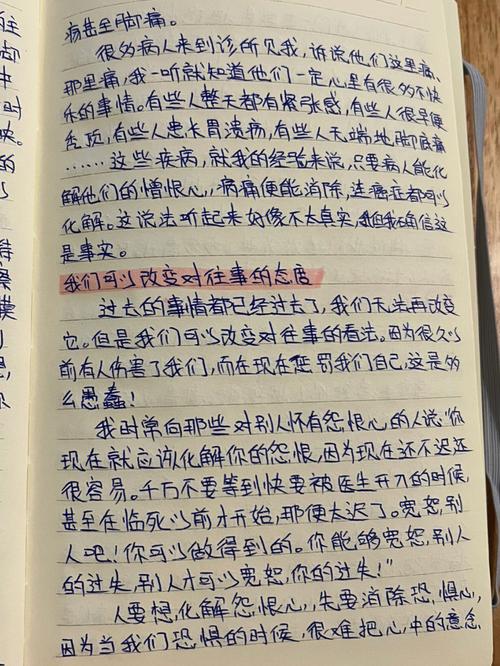 病甚至脚痛。
很多病人来到诊所见我，诉说他们这里痛、
那里痛，我一听就知道他们一定心里有很多不快
乐的事情。有些人整天都有紧张感，有些人很早便
秃顶，有些人患长胃溃疡，有些人无端地脚底痛
……这些疾病，就我的经验来说，只要病人能化
解他们的憎恨心，病痛便能消除，连癌症都可以
化解。这说法听起来好像不太真实，但我确信这
是事实。
我们可以改变对往事的态度
过去的事情都已经过去了，我们无法再改变
它。但是我们可以改变对往事的看法。因为很久以
前有人伤害了我们，而在现在惩罚我们自己，这是多
么愚蠢！
我时常向那些对别人怀有怨恨心的人说："你
现在就应该化解你的怨恨，因为现在还不迟还
很容易。千万不要等到快要被医生开刀的时候，
甚至在临死以前才开始，那便太迟了。宽恕别
人吧！你可以做得到的。你能够宽恕别人
的过失，别人才可以宽恕你的过失！"
人要想化解怨恨心，先要消除恐惧心，
因为当我们恐惧的时候，很难把心中的意念